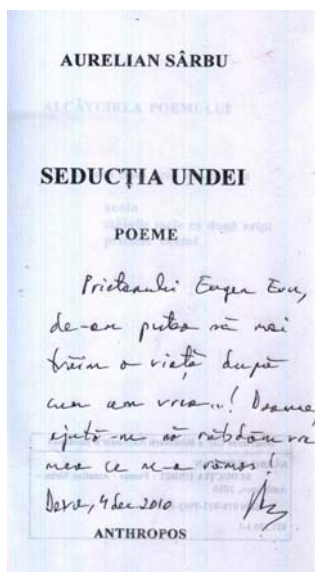 AURELIAN SÂRBU
ALCĂTUIREA POEMULUI
SEDUCȚIA UNDEI
POEME
Prietenului Eugen Evu,
de-am putea să mai
trăim o viață după
cum am vrea...! Doamne,
ajută-ne să răbdăm vre
mea ce ne-a rămas!
Deva, 4 dec. 2010
ANTHROPOS